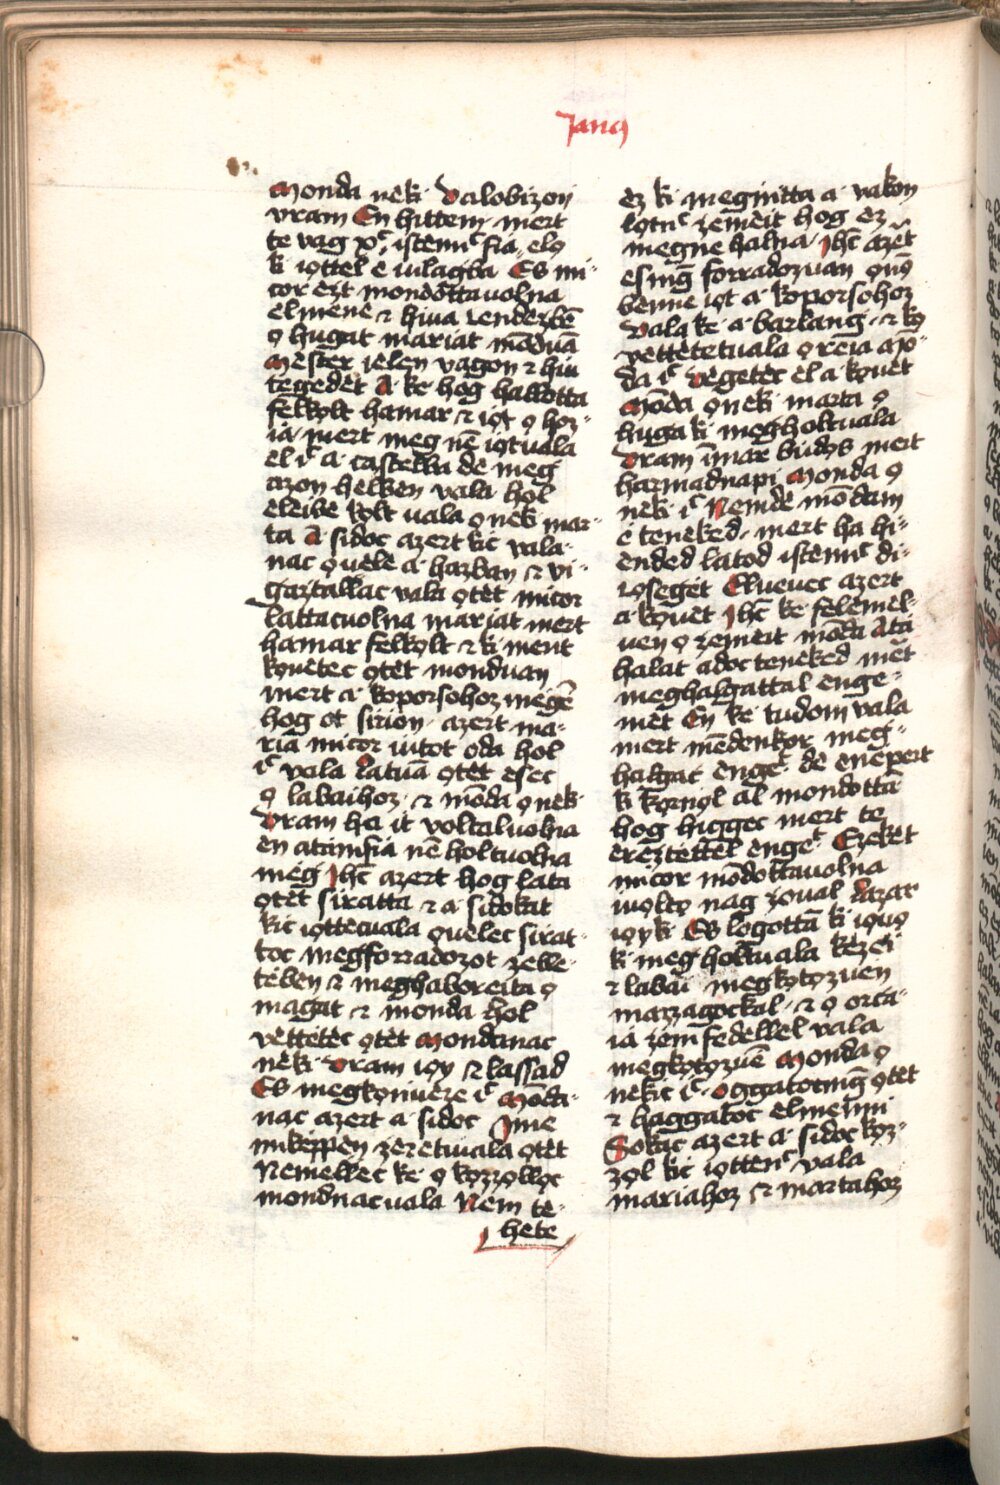 Janꝯ
Monda nèki· Valobizoṅ
vram En hittem· mert
te vag xꝰc istennc fia· elọ
ki iọttel e iulagba Es mi-
cor ezt mondotta volna
elmene ⁊ hiua čendezbē
ọ hugat mariat mōduā
Mester ielen vagon ⁊ hiu
tegedet A· ke hog hallotta
felkọlt hamar ⁊ iọt ọ hoz-
ia· mert meg nē iọtuala
el ic a· castelba de meg
azon helben vala· hol
eleibe kolt uala ọnèki mar-
ta A sidoc azert kic vala-
nac ọuele a· hazban ⁊ vi-
gaztallac vala ọtet micor
lattacuolna mariat mert
hamar felkọlt ⁊ ki ment
kọuetec ọtet monduan
mert a· koporsohoz megē
hog ot sirion· azert ma-
ria micor iutot oda hol
ic vala latuā ọtet esec
ọ labaihoz· ⁊ mōda ọnèki
Vram ha it voltaluolna
en atāmfia nē holtuolna
meg Jhc azert hog lata
ọtet siratta ⁊ a· sidokat
kic iọttecuala ọuelec sirat-
toc megforradozot zelle-
teben ⁊ meghaboreita ọ
magat ⁊ monda hol
vettetec ọtet Mondanac
nèki· Vram iọy ⁊ lassad
Es megkọniueze ic Mōda-
nac azert a· sidoc Jme
mikeppen zeretiuala ọtet
Nemellec ke· ọ kọzzọllọc
mondnacuala Nem te-
hete
ez ki megnitta a· vakon
zọtnc zemeit hog ez
megne halna· Jhc azēt
esmēg forradozuan ọnọ
benne iọt a· koporsohoz
Vala ke· a· barlang· ⁊ kọ
vettetetuala ọ reia azō-
da ic Vegetec el a kọuet
Mōda ọnèki marta ọ
huga ki megholtuala
Vram īmar būdọs mert
harmadnapi Monda ọ
nèki ic Nemde mōdam
e teneked· mert ha hi-
ended latod istennc di-
zọseget Eluevec azert
a kọuet Jhc ke· felemel-
uen ọ zemeit mōda Atā
halat adoc teneked mēt
meghalgattal enge-
met En ke· tudom vala
mert mēdenkor meg-
halgac enget de enepert
ki kọrnọl al mondottā
hog higgec mert te
ereztettel enget Ezeket
micor mōdottavolna
iuọltọ nag zoual Lazar
iọy ki· Es legottā ki iọuọ
ki meg holtuala kezei
⁊ labai megkọtọzuen
mazzagockal· ⁊ ọ orca-
ia zemfedellel vala
megkọtọzuē Monda ọ
nèkic ic· Oggatocmēg ọtet
⁊ haggatoc elmenni
Sokac azert a· sidoc kọz-
zọl kic iọttenc vala
mariahoz ⁊ martahoz